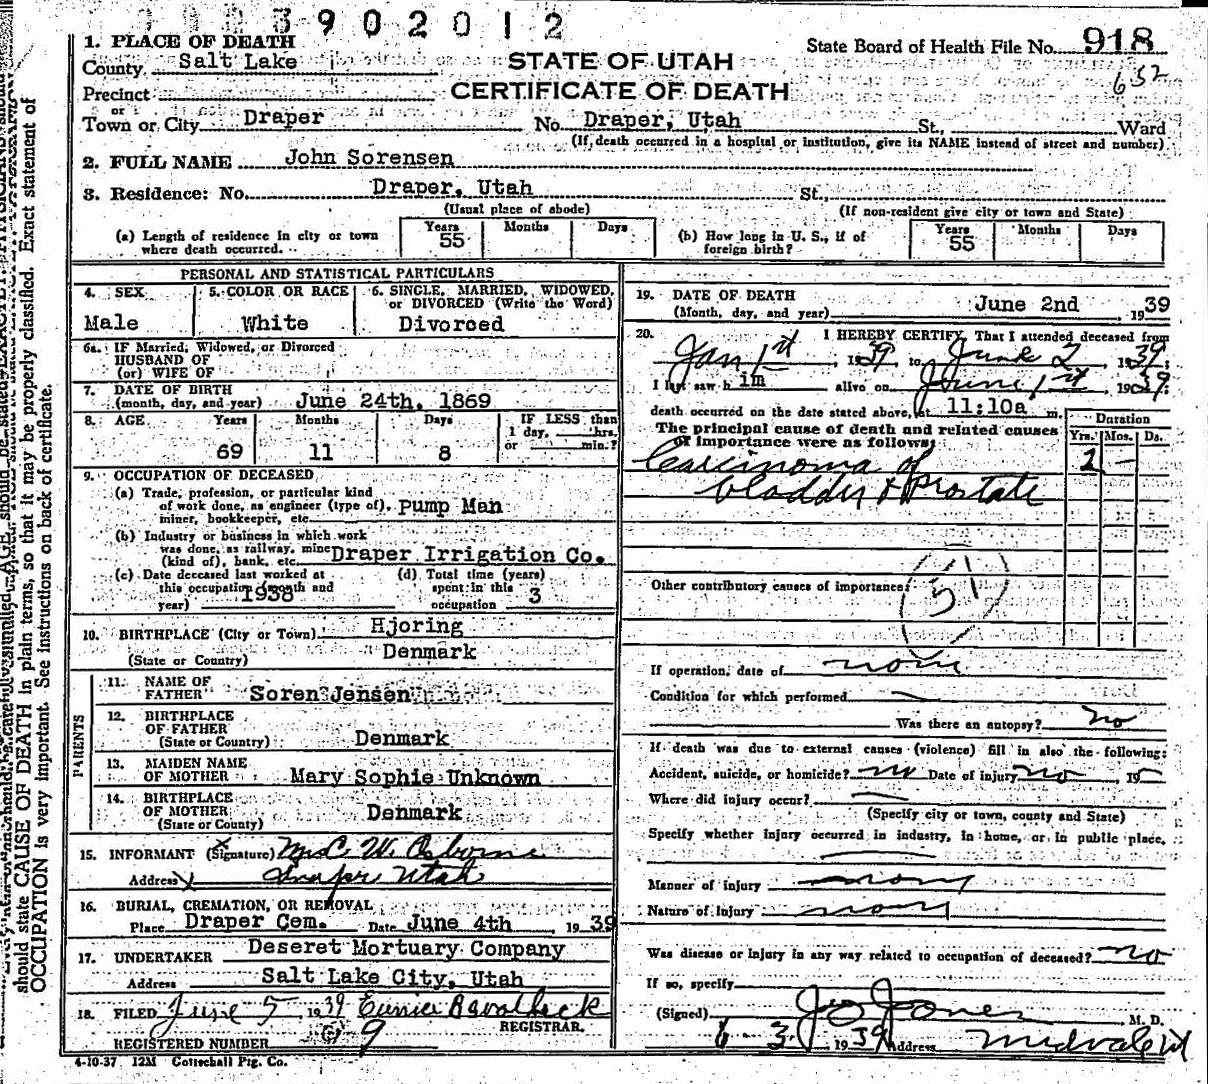 3902012
State Board of Health File No. 918
652
STATE OF UTAH
CERTIFICATE OF DEATH
1. PLACE OF DEATH
County Salt Lake
Precinct
or
Town or City Draper No. Draper, Utah St., Ward
(If death occurred in a hospital or institution, give its NAME instead of street and number)
2. FULL NAME John Sorensen
3. Residence: No. Draper, Utah St.
(Usual place of abode) (If non-resident give city or town and State)
(a) Length of residence in city or town where death occurred. Years 55 Months Days
(b) How long in U. S., if of foreign birth? Years 55 Months Days
PERSONAL AND STATISTICAL PARTICULARS
4. SEX Male
5. COLOR OR RACE White
6. SINGLE, MARRIED, WIDOWED, or DIVORCED (Write the Word) Divorced
6a. IF Married, Widowed, or Divorced
HUSBAND OF
(or) WIFE OF
7. DATE OF BIRTH
(month, day, and year) June 24th, 1869
8. AGE Years 69 Months 11 Days 8 IF LESS than 1 day, hrs. or min.?
9. OCCUPATION OF DECEASED
(a) Trade, profession, or particular kind
of work done, as engineer (type of), Pump Man
miner, bookkeeper, etc.
(b) Industry or business in which work
was done, as railway, mine Draper Irrigation Co.
(kind of), bank, etc.
(c) Date deceased last worked at
this occupation (month and
year) 1938
(d) Total time (years)
spent in this
occupation 3
10. BIRTHPLACE (City or Town) Hjoring
(State or Country) Denmark
PARENTS
11. NAME OF
FATHER Soren Jensen
12. BIRTHPLACE
OF FATHER
(State or Country) Denmark
13. MAIDEN NAME
OF MOTHER Mary Sophie Unknown
14. BIRTHPLACE
OF MOTHER
(State or Country) Denmark
15. INFORMANT (Signature) Mrs C. W. Osborne
Address Draper Utah
16. BURIAL, CREMATION, OR REMOVAL
Place Draper Cem. Date June 4th, 1939
17. UNDERTAKER Deseret Mortuary Company
Address Salt Lake City, Utah
18. FILED June 5, 1939 Eunice
REGISTRAR.
REGISTERED NUMBER 9
4-10-37 12M Gottschall Ptg. Co.
19. DATE OF DEATH
(Month, day, and year) June 2nd 1939
20. I HEREBY CERTIFY, That I attended deceased from
Jan 1st 1939, to June 2, 1939,
I last saw h im alive on June 1st 1939;
death occurred on the date stated above, at 11:10a m.
The principal cause of death and related causes
of importance were as follows:
Duration
Yrs. Mos. Ds.
Carcinoma of 2 -
bladder & Prostate
Other contributory causes of importance:
51
If operation, date of none
Condition for which performed
Was there an autopsy? no
If death was due to external causes (violence) fill in also the following:
Accident, suicide, or homicide? no Date of injury no, 19
Where did injury occur?
(Specify city or town, county and State)
Specify whether injury occurred in industry, in home, or in public place.
Manner of injury none
Nature of injury none
Was disease or injury in any way related to occupation of deceased? no
If so, specify
(Signed) Jones M. D.
6-3, 1939 Address Midvale Ut
should state CAUSE OF DEATH in plain terms, so that it may be properly classified. Exact statement of
OCCUPATION is very important. See instructions on back of certificate.